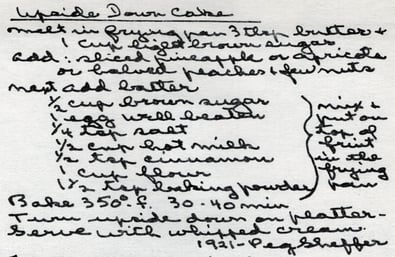 Upside Down Cake
melt in frying pan 3 tsp butter +
1 cup light brown sugar
add: sliced pineapple or apricots
or halved peaches + few nuts
next add batter
½ cup brown sugar
1 egg well beaten
¼ tsp salt
½ cup hot milk
½ tsp cinnamon
1 cup flour
1½ tsp baking powder
mix +
put on
top of
fruit
in the
frying
pan
Bake 350°. f. 30-40 min
Turn upside down on platter-
serve with whipped cream.
1921-Peg Sheffer